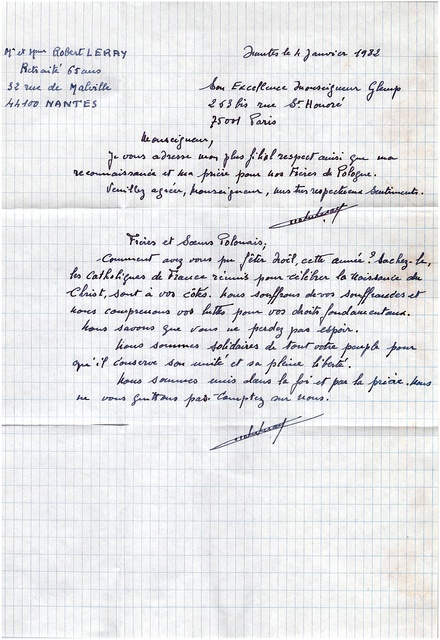 Mr et Mme Robert LERAY
Retraité 65 ans
32 rue de Malville
44100 NANTES
Nantes le 4 Janvier 1982
Son Excellence Monseigneur Glemp
263 bis rue St Honoré
75001 Paris
Monseigneur,
Je vous adresse mon plus filial respect ainsi que ma
reconnaissance et ma prière pour nos Frères de Pologne.
Veuillez agréer, Monseigneur, mes très respectueux sentiments.
Frères et Sœurs Polonais,
Comment avez vous pu fêter Noël, cette année ? Sachez-le,
les Catholiques de France réunis pour célébrer la Naissance du
Christ, sont à vos côtés. Nous souffrons de vos souffrances et
nous comprenons vos luttes pour vos droits fondamentaux.
Nous savons que vous ne perdez pas espoir.
Nous sommes solidaires de tout votre peuple pour
qu'il conserve son unité et sa pleine liberté.
Nous sommes unis dans la foi et par la prière. Nous
ne vous quittons pas. Comptez sur nous.